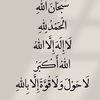 سُبْحَانَ اللهِ
الْحَمْدُ لِلّٰهِ
لَا إِلٰهَ إِلَّا اللهُ
اللهُ أَكْبَرُ
لَا حَوْلَ وَلَا قُوَّةَ إِلَّا بِاللهِ